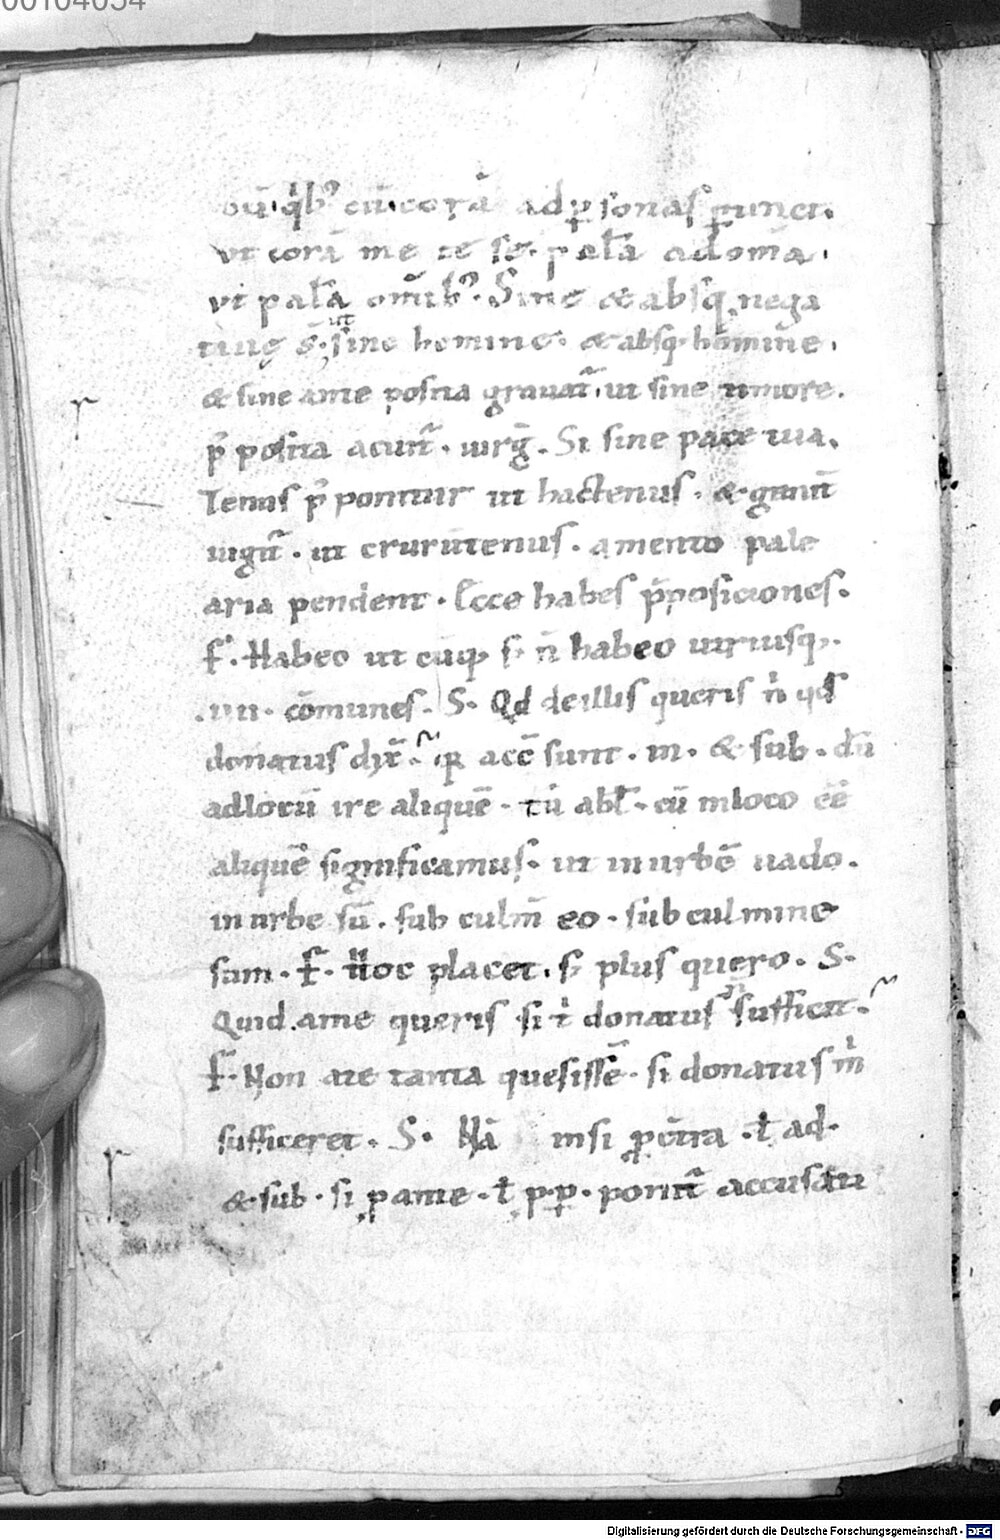 00104054
bꝰ cū corā ad ꝑsonas ꝑtinet.
ut corā me te se. palā ad om̄a.
ut palā om̄ibꝰ. Sine & absq; nega
tiue s̄. ut sine homine. & absq; homine.
& sine ante posita grauat̄. ut sine timore.
p̄posita acuit̄. uirḡ. Si sine pace tua.
Tenus p̄ponitur ut hactenus. &
uirgil̄. ut crurūtenus. a mento pale
aria pendent. Ecce habes p̄posiciones.
F̄. Habeo utcūq; s; n̄ habeo utriusq;.
.iiii. cōmunes. S. Qd de illis queris n̄ qd
donatus dix̄. qꝛ acc̄ sunt. in. & sub. cū
ad locū ire aliquē. tū abl̄. cū in loco eē
aliquē significamus. ut in urbē uado.
in urbe sū. sub culm̄ eo. sub culmine
sum. F̄. Hoc placet. s; plus quero. S.
Quid a me queris si t donatus n̄ sufficit.
F̄. Non a te tanta quesissē. si donatus m
sufficeret. S. Nā nisi ꝓ cōtra. ł ad.
& sub. si p ante. ł ponunt̄ accusati
Digitalisierung gefördert durch die Deutsche Forschungsgemeinschaft - DFG